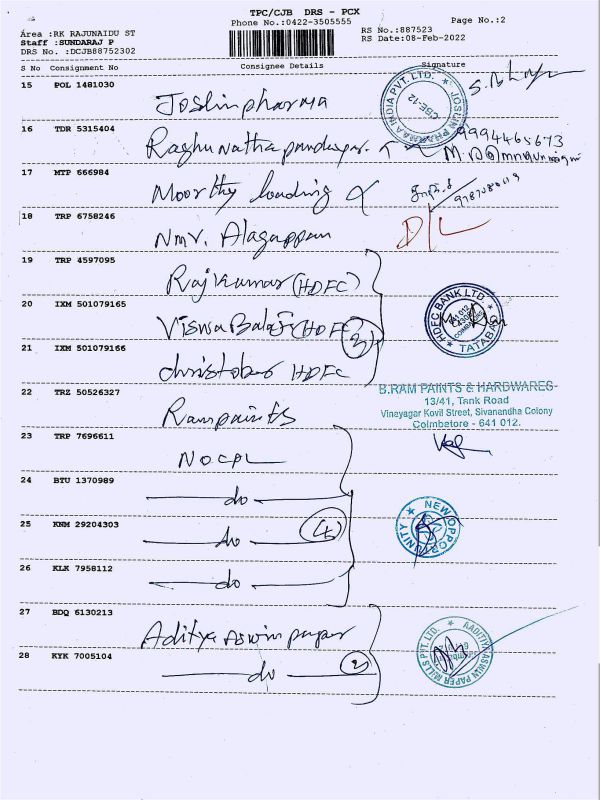 TPC/CJB DRS - PCX
Phone No.:0422-3505555
Page No.:2
Area :RK RAJUNAIDU ST
RS No.:887523
Staff :SUNDARAJ P
RS Date:08-Feb-2022
DRS No. :DCJB88752302
S No Consignment No Consignee Details Signature
15 POL 1481030
Joslinpharma
JOSLIN PHARMAA INDIA PVT. LTD.
CBE-12
16 TDR 5315404
Raghunatha
9994465673
17 MTP 666984
Moorthy loading
18 TRP 6758246
Nmv. Alagappan
D/L
19 TRP 4597095
Rajkumar (HDFC)
20 IXM 501079165
Viswa Balaji (HDFC)
3
HDFC BANK LTD.
TATABAD
21 IXM 501079166
christober HDFC
22 TRZ 50526327
Rampaints
B.RAM PAINTS & HARDWARES
13/41, Tank Road
Vinayagar Kovil Street, Sivanandha Colony
Coimbatore - 641 012.
23 TRP 7696611
NOCPL
24 BTU 1370989
do
25 KNM 29204303
do
4
NEW OPPORTUNITY
26 KLK 7958112
do
27 BDQ 6130213
Aditya Aswin paper
AADITIYA ASWIN PAPER MILLS PVT. LTD.
28 KYK 7005104
do
2